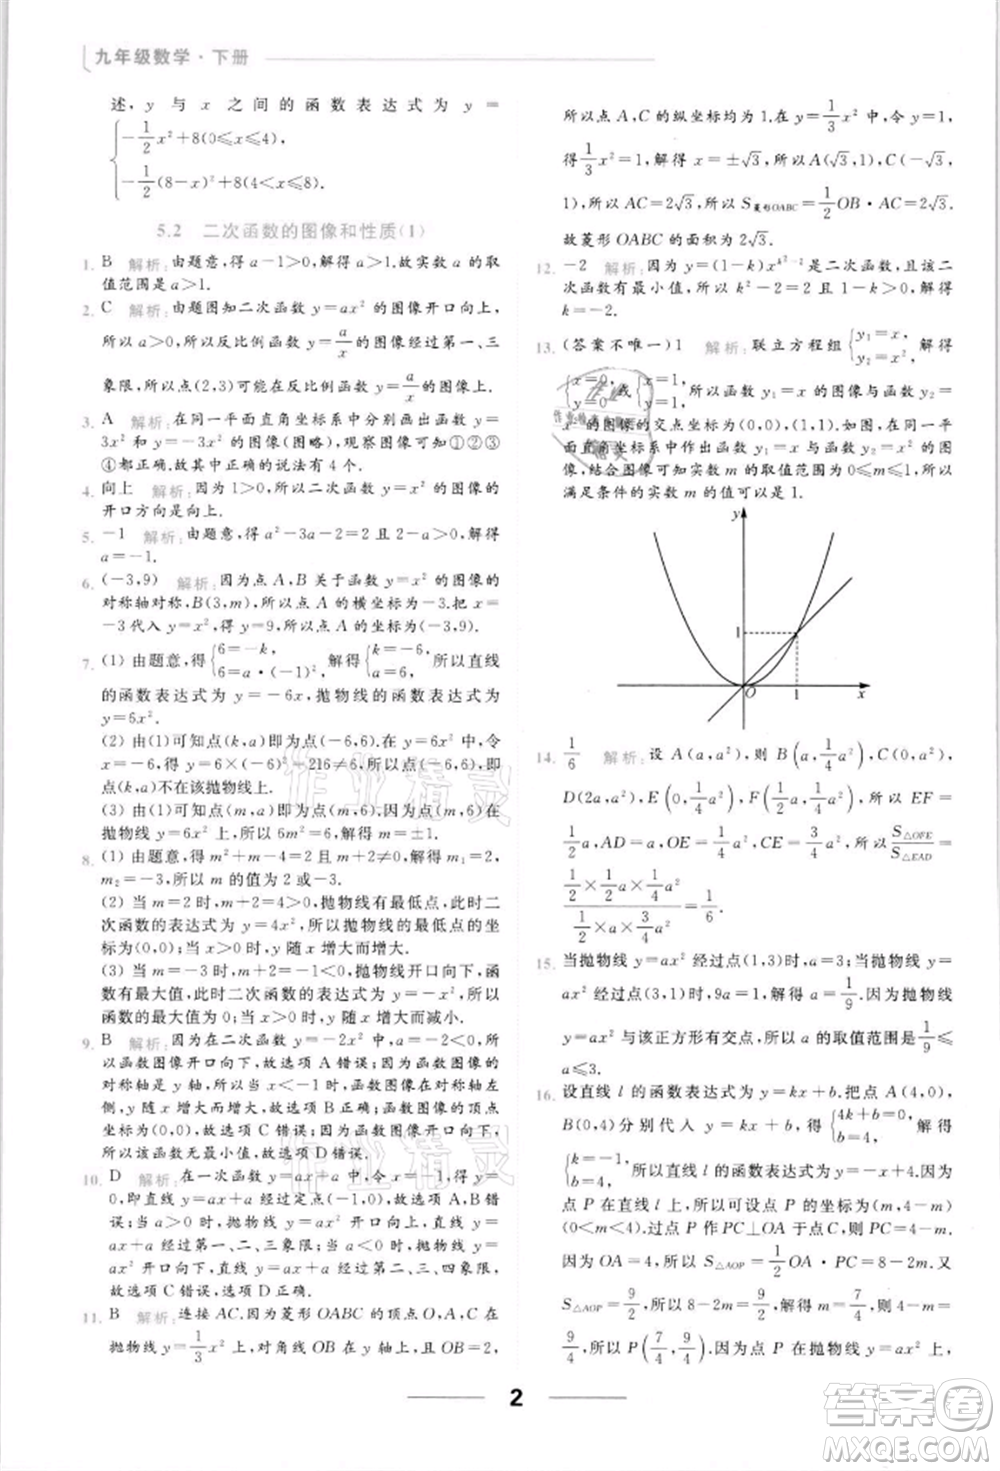 九年级数学·下册
述, y 与 x 之间的函数表达式为 y=
{-1/2x²+8(0≤x≤4),
-1/2(8-x)²+8(4<x≤8).
5.2 二次函数的图像和性质(1)
1. B 解析:由题意,得a-1>0,解得a>1.故实数a的取
值范围是a>1.
2. C 解析:由题图知二次函数y=ax²的图像开口向上,
所以a>0,所以反比例函数y=a/x的图像在第一、三
象限,所以点(2,3)可能在反比例函数y=a/x的图像上.
3. A 解析:在同一平面直角坐标系中分别画出函数y=
3x²和y=-3x²的图像(图略),观察图像可知①②③
④都正确.故其中正确的说法有4个.
4. 向上 解析:由a=√5-1>0,得该二次函数的图像的
开口方向是向上.
5. -1 解析:由题意,得a²-3a-2=2且a<0,解得
a=-1.
6. (-3,9) 解析:因为点A,B关于函数y=x²的图像的
对称轴对称,B(3,m),所以点A的横坐标为-3.把x=
-3代入y=x²,得y=9,所以点A的坐标为(-3,9).
7. (1) 由题意,得{6=-k, 6=a·(-1)². 解得{k=-6, a=6. 所以直线
的函数表达式为y=-6x,抛物线的函数表达式为
y=6x².
(2) 由(1)可知点(k,a)即为点(-6,6).在y=6x²中,令
x=-6,得y=6×(-6)²=216≠6,所以点(-6,6),即点
(k,a)不在该抛物线上.
(3) 由(1)可知点(m,a)即为点(m,6).因为点(m,6)在
抛物线y=6x²上,所以6m²=6,解得m=±1.
8. (1) 由题意,得m²+m-4=2且m+2≠0,解得m₁=2,
m₂=-3,所以m的值为2或-3.
(2) 当m=2时,m+2=4>0,抛物线有最低点,此时二
次函数的表达式为y=4x²,所以该抛物线的最低点的
坐标为(0,0);当x>0时,y随x增大而增大.
(3) 当m=-3时,m+2=-1<0,抛物线开口向下,函数
有最大值,此时二次函数的表达式为y=-x²,所以二次
函数的最大值为0;当x>0时,y随x增大而减小.
9. B 解析:因为在二次函数y=-2x²中,a=-2<0,所
以函数图像开口向下,故选项A错误;因为函数图像的
对称轴是y轴,函数图像开口向下,所以在对称轴左侧,
y随x增大而增大,故选项B正确;当x=0时,函数有
最大值0,故选项C错误;因为函数图像开口向下,所以
该函数无最小值,故选项D错误.
10. D 解析:在一次函数y=ax+a中,令y=0,得x=-1,
即直线y=ax+a经过点(-1,0),故选项A,B错
误;当a>0时,抛物线y=ax²开口向上,直线y=
ax+a经过第一、二、三象限,故选项C错误;当a<0
时,抛物线y=ax²开口向下,直线y=ax+a经过第
二、三、四象限,故选项D正确.
11. B 解析:连接AC.因为菱形OABC的顶点O,A,C在
抛物线y=1/3x²上,对角线OB在y轴上,且OB=2,
所以点A,C的纵坐标均为1.在y=1/3x²中,令y=1,
得1/3x²=1,解得x=±√3.所以A(√3,1),C(-√3,
1),所以AC=2√3,所以S菱形OABC=1/2OB·AC=2√3.
故菱形OABC的面积为2√3.
12. -2 解析:因为y=(1-k)x^(k²-2)是二次函数,且该二
次函数有最小值,所以k²-2=2且1-k>0,解得
k=-2.
13. (答案不唯一)1 解析:联立方程组{y₁=x, y₂=x², 解得
{x=0, y=0 或{x=1, y=1, 所以函数y₁=x的图像与函数y₂=
x²的图像的交点坐标为(0,0),(1,1).如图,在同一平面
直角坐标系中作出函数y₁=x与函数y₂=x²的图
像,结合图像可知实数m的取值范围为0≤m≤1,所以
满足条件的实数m的值可以是1.
y
1
O 1 x
14. 1/6 解析:设A(a,a²),则B(a,1/4a²),C(0,a²),
D(2a,a²),E(0,1/4a²),F(1/2a,1/4a²),所以EF=
1/2a,AD=a,OE=1/4a²,CE=3/4a².所以S△OFE/S△EAD=
(1/2×1/2a×1/4a²)/(1/2×a×3/4a²)=1/6.
15. 当抛物线y=ax²经过点(1,3)时,a=3;当抛物线y=
ax²经过点(3,1)时,9a=1,解得a=1/9.因为抛物线
y=ax²与该正方形有交点,所以a的取值范围是1/9≤
a≤3.
16. 设直线l的函数表达式为y=kx+b.把点A(4,0),
B(0,4)分别代入y=kx+b,得{4k+b=0, b=4, 解得
{k=-1, b=4, 所以直线l的函数表达式为y=-x+4.因为
点P在直线l上,所以可设点P的坐标为(m,4-m)
(0<m<4).过点P作PC⊥OA于点C,则PC=4-m.
因为OA=4,所以S△AOP=1/2OA·PC=8-2m.因为
S△AOP=9/2,所以8-2m=9/2,解得m=7/4,则4-m=
9/4,所以P(7/4,9/4).因为点P在抛物线y=ax²上,
2
作业精灵
作业精灵
答案圈
MXQE.COM